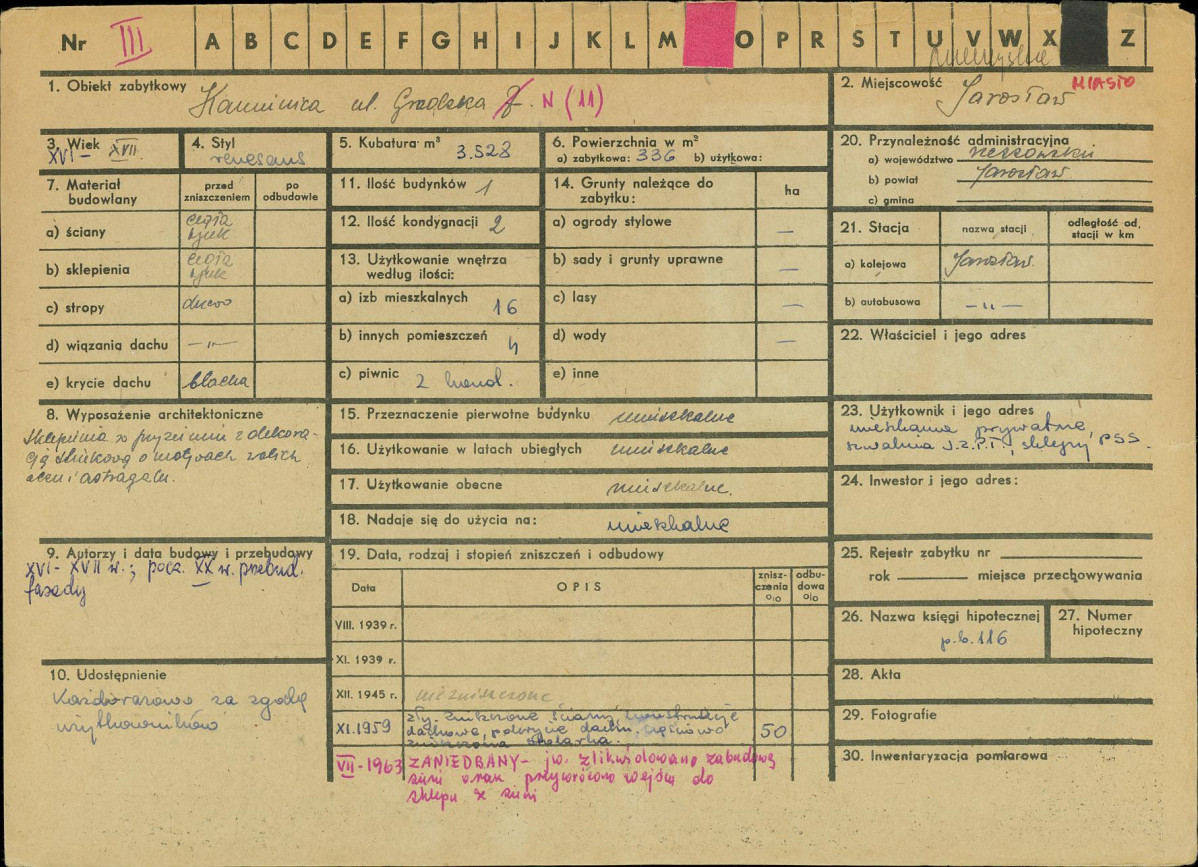 Nr III A B C D E F G H I J K L M O P R S T U V W X Z
1. Obiekt zabytkowy Kamienica ul. Grodzka 7. N (11)
2. Miejscowość Jarosław MIASTO
3. Wiek XVI - XVII
4. Styl renesans
5. Kubatura m³ 3.528
6. Powierzchnia w m²
a) zabytkowa: 336 b) użytkowa:
7. Materiał budowlany
przed zniszczeniem
po odbudowie
a) ściany cegła tynk
b) sklepienia cegła tynk
c) stropy drewno
d) wiązania dachu -"-
e) krycie dachu blacha
8. Wyposażenie architektoniczne
Sklepienia w przyziemiu z dekora-
cją stiukową o motywach wolich
oczu i astragalu.
9. Autorzy i data budowy i przebudowy
XVI - XVII w.; pocz. XX w. przebud.
fasady
10. Udostępnienie
Każdorazowo za zgodą
użytkowników
11. Ilość budynków 1
12. Ilość kondygnacji 2
13. Użytkowanie wnętrza
według ilości:
a) izb mieszkalnych 16
b) innych pomieszczeń 4
c) piwnic 2 kond.
14. Grunty należące do
zabytku:
ha
a) ogrody stylowe –
b) sady i grunty uprawne –
c) lasy –
d) wody –
e) inne
15. Przeznaczenie pierwotne budynku mieszkalne
16. Użytkowanie w latach ubiegłych mieszkalne
17. Użytkowanie obecne mieszkalne.
18. Nadaje się do użycia na: mieszkalne
19. Data, rodzaj i stopień zniszczeń i odbudowy
Data OPIS znisz-
czenia
o/o odbu-
dowa
o/o
VIII. 1939 r.
XI. 1939 r.
XII. 1945 r. niezniszczone
XI.1959 zły. zniszczone ściany, konstrukcje
dachowe, pokrycie dachu, częściowo
zniszczona stolarka. 50
VII-1963 ZANIEDBANY - jw. zlikwidowano zabudowę
sieni oraz przywrócono wejście do
sklepu z sieni
20. Przynależność administracyjna
a) województwo rzeszowskie
b) powiat Jarosław
c) gmina
21. Stacja nazwa stacji odległość od
stacji w km
a) kolejowa Jarosław.
b) autobusowa -"-
22. Właściciel i jego adres
23. Użytkownik i jego adres
mieszkania prywatne,
szwalnia J.Z.P.T., sklepy PSS.
24. Inwestor i jego adres:
25. Rejestr zabytku nr
rok miejsce przechowywania
26. Nazwa księgi hipotecznej
p.b. 116
27. Numer
hipoteczny
28. Akta
29. Fotografie
30. Inwentaryzacja pomiarowa